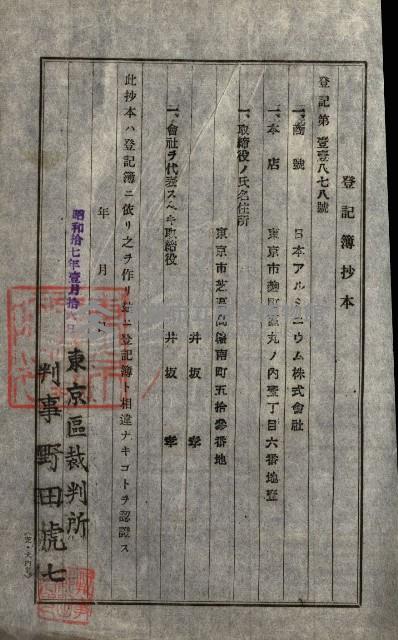 登記簿抄本
登記第壹壹八七八號
一、商號 日本アルミニウム株式會社
一、本店 東京市麴町區丸ノ内壹丁目六番地壹
一、取締役ノ氏名住所
東京市芝區高輪南町五拾參番地
井坂孝
一、會社ヲ代表スヘキ取締役 井坂孝
此抄本ハ登記簿ニ依リ之ヲ作リ 登記簿ト相違ナキコトヲ認證ス
年 月
昭和拾七年壹月拾 日
東京區裁判所
判事 野田虎七